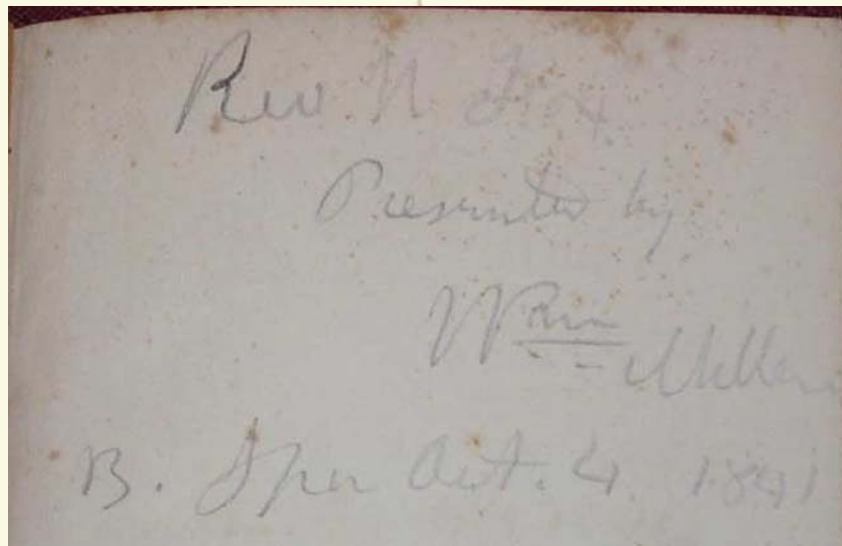 Rev. N. Fox
Presented by
Wm Miller
B. Spa Oct. 4. 1841